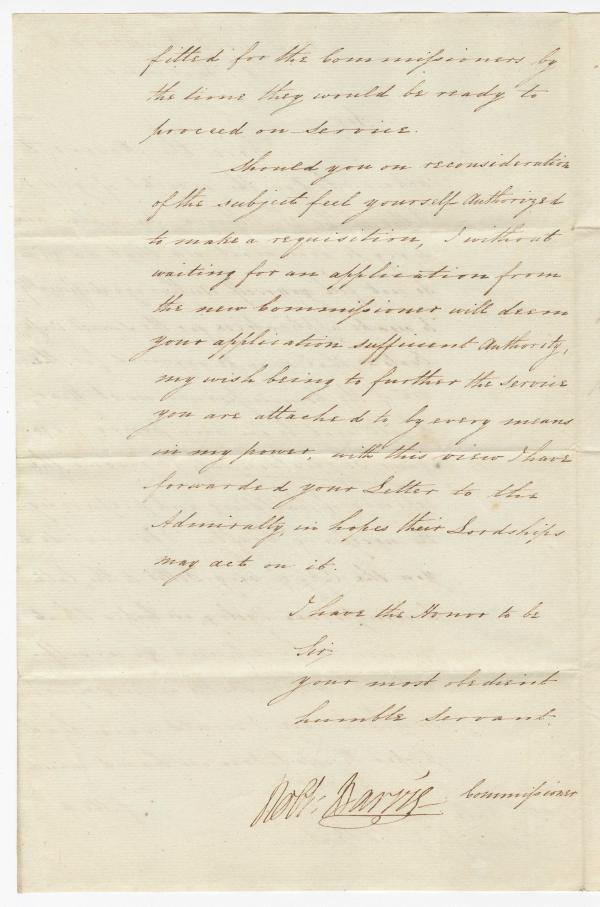 fitted for the Commissioners by
the time they would be ready to
proceed on Service.
Should you on reconsideration
of the subject feel yourself Authorized
to make a requisition, I without
waiting for an application from
the new Commissioner will deem
your application sufficient Authority,
my wish being to further the Service
you are attached to by every means
in my power, with this view I have
forwarded your Letter to the
Admiralty, in hopes their Lordships
may act on it.
I have the Honor to be
Sir,
your most obedient
humble Servant.
Robt. Barrie Commissioner